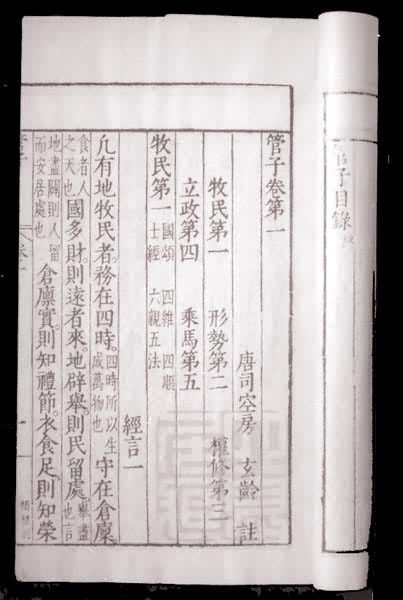 管子目録
管子卷第一
唐司空房 玄齡 註
牧民第一 形勢第二 權修第三
立政第四 乘馬第五
牧民第一 國頌 四維 四順 士經 六親五法 經言一
凡有地牧民者。務在四時。四時所以生成萬物也 守在倉廩。
食者人之天也 國多財。則遠者來。地辟舉。則民留處。舉盡也言
地盡闢則人留而安居處也 倉廩實。則知禮節。衣食足。則知榮